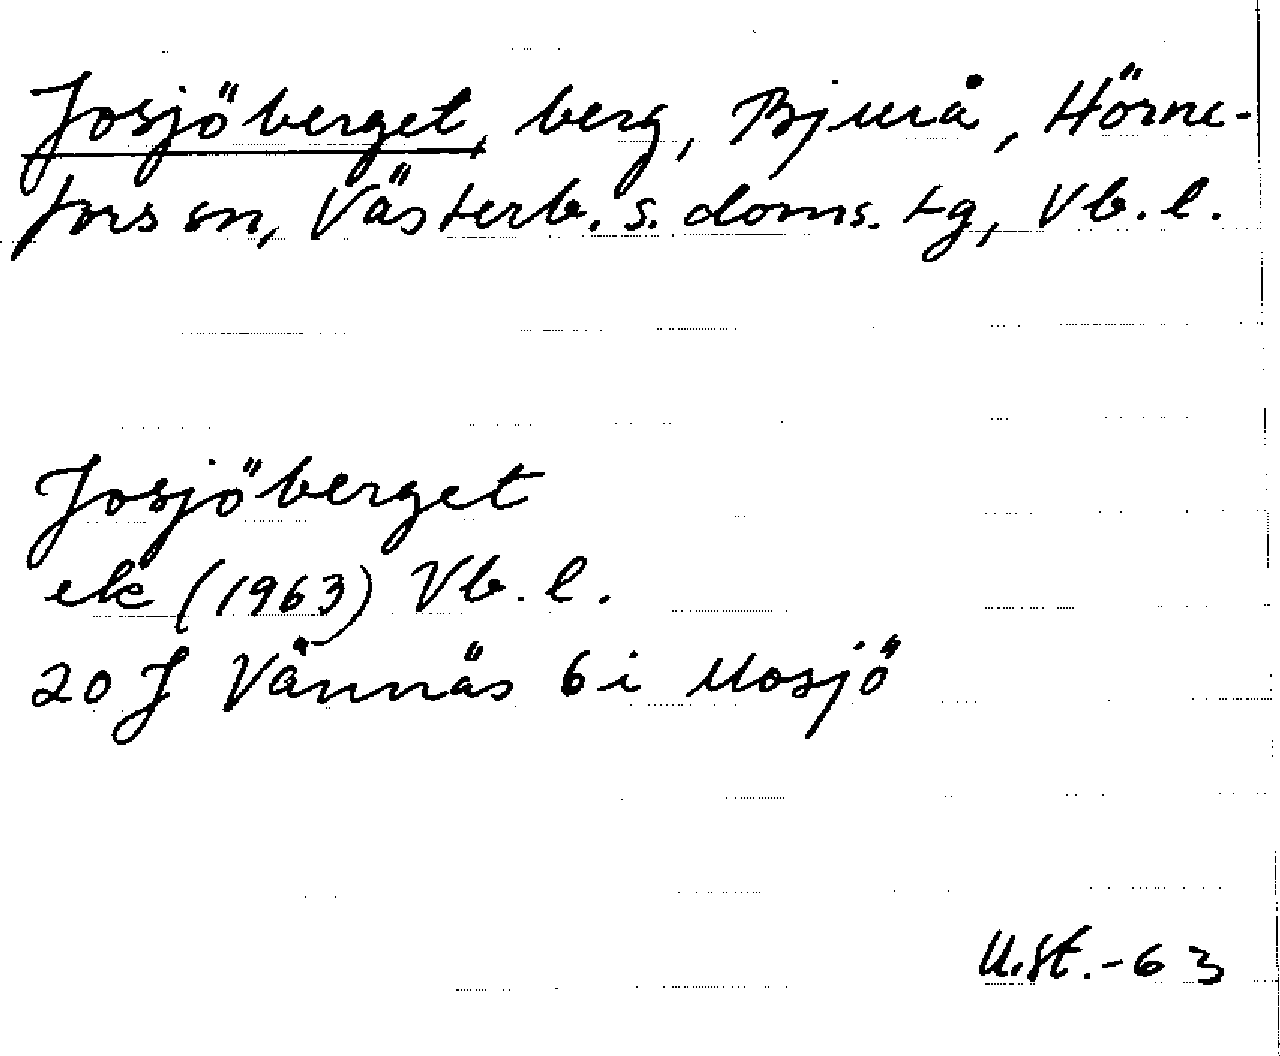 Josjöberget, berg, Bjurå, Hörne-
fors sn, Västerb. s. doms. tg, Vb. l.
Josjöberget
ek (1963) Vb. l.
20 J Vännäs 6 i Mosjö
U.St.-63